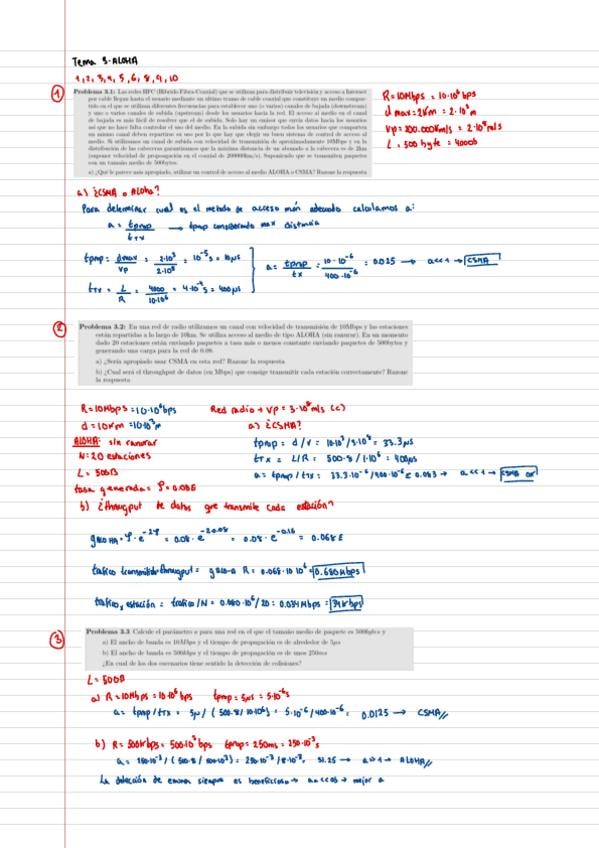 Tema 3-ALOHA
1, 2, 3, 4, 5, 6, 8, 9, 10
1
Problema 3.1: Las redes HFC (Híbrido Fibra-Coaxial) que se utilizan para distribuir televisión y acceso a Internet
por cable llegan hasta el usuario mediante un último tramo de cable coaxial que constituye un medio compar-
tido en el que se utilizan diferentes frecuencias para establecer uno (o varios) canales de bajada (downstream)
y uno o varios canales de subida (upstream) desde los usuarios hacia la red. El acceso al medio en el canal
de bajada es más fácil de resolver que el de subida. Solo hay un emisor que envía datos hacia los usuarios
así que no hace falta controlar el uso del medio. En la subida sin embargo todos los usuarios que comparten
un mismo canal deben repartirse su uso por lo que hay que elegir un buen sistema de control de acceso al
medio. Si utilizamos un canal de subida con velocidad de transmisión de aproximadamente 10Mbps y en la
distribución de las cabeceras garantizamos que la máxima distancia de un abonado a la cabecera es de 2km
(suponer velocidad de propagación en el coaxial de 200000km/s). Suponiendo que se transmiten paquetes
con un tamaño medio de 500bytes.
a) ¿Qué le parece más apropiado, utilizar un control de acceso al medio ALOHA o CSMA? Razone la respuesta
R = 10Mbps = 10·10⁶ bps
d max = 2Km = 2·10³ m
Vp = 200.000Km/s = 2·10⁸ m/s
L = 500 byte = 4000b
a) ¿CSMA o Aloha?
Para determinar cual es el metodo de acceso más adecuado calculamos a:
a = tprop / ttx → tprop considerando max distancia
tprop = dmax / Vp = 2·10³ / 2·10⁸ = 10⁻⁵ s = 10µs
ttx = L / R = 4000 / 10·10⁶ = 4·10⁻⁴ s = 400µs
a = tprop / tx = 10·10⁻⁶ / 400·10⁻⁶ = 0.025 → a<<1 → CSMA
2
Problema 3.2: En una red de radio utilizamos un canal con velocidad de transmisión de 10Mbps y las estaciones
están repartidas a lo largo de 10km. Se utiliza acceso al medio de tipo ALOHA (sin ranurar). En un momento
dado 20 estaciones están enviando paquetes a tasa más o menos constante enviando paquetes de 500bytes y
generando una carga para la red de 0.08.
a) ¿Sería apropiado usar CSMA en esta red? Razone la respuesta
b) ¿Cual será el throughput de datos (en Mbps) que consige transmitir cada estación correctamente? Razone
la respuesta
R = 10Mbps = 10·10⁶ bps Red radio → Vp = 3·10⁸ m/s (c)
d = 10Km = 10·10³ m a) ¿CSMA?
ALOHA: sin ranurar tprop = d/v = 10·10³/3·10⁸ = 33.3µs
N = 20 estaciones ttx = L/R = 500·8/1·10⁶ = 400µs
L = 500B a = tprop/ttx = 33.3·10⁻⁶/400·10⁻⁶ = 0.083 → a<<1 → CSMA
tasa generada = ρ = 0.08E
b) ¿throughput de datos que transmite cada estación?
ρ·e⁻²ᵖ = 0.08·e⁻²·⁰·⁰⁸ = 0.08·e⁻⁰·¹⁶ = 0.068E
R = 0.068·10·10⁶ = 0.680Mbps
trafico/N = 0.680·10⁶/20 = 0.034Mbps = 34kbps
3
Problema 3.3 Calcule el parámetro a para una red en el que el tamaño medio de paquete es 500bytes y
a) El ancho de banda es 10Mbps y el tiempo de propagación es de alrededor de 5µs
b) El ancho de banda es 500kbps y el tiempo de propagación es de unos 250ms
¿En cual de los dos escenarios tiene sentido la detección de colisiones?
L = 500B
a) R = 10Mbps = 10·10⁶ bps tprop = 5µs = 5·10⁻⁶ s
a = tprop/ttx = 5µ/(500·8/10·10⁶) = 5·10⁻⁶/400·10⁻⁶ = 0.0125 → CSMA//
b) R = 500kbps = 500·10³ bps tprop = 250ms = 250·10⁻³ s
a = 250·10⁻³/(500·8/500·10³) = 250·10⁻³/8·10⁻³ = 31.25 → a>>1 → ALOHA//
La detección de siempre es beneficioso → → mejor a